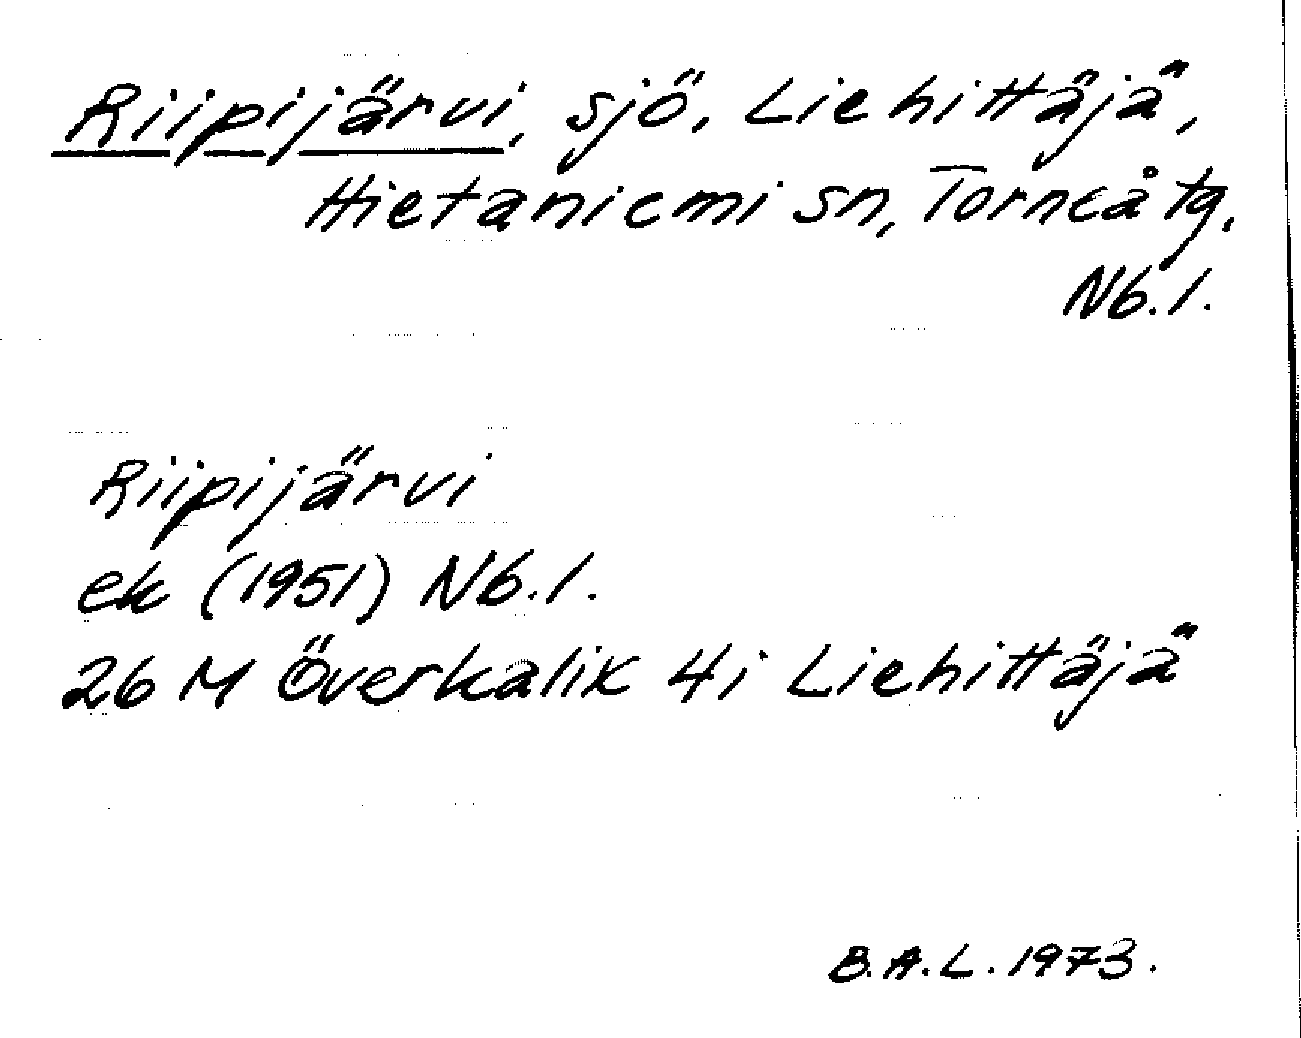 Riipijärvi, sjö, Liehittäjä,
Hietaniemi sn, Torneå tg,
Nb.l.
Riipijärvi
ek (1951) Nb.l.
26 M Överkalix 4i Liehittäjä
B.A.L. 1973.